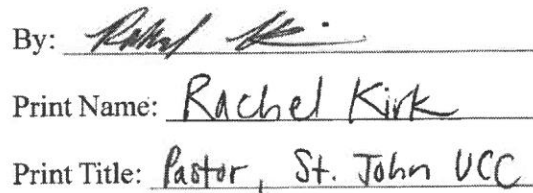 By:
Print Name: Rachel Kirk
Print Title: Pastor, St. John UCC